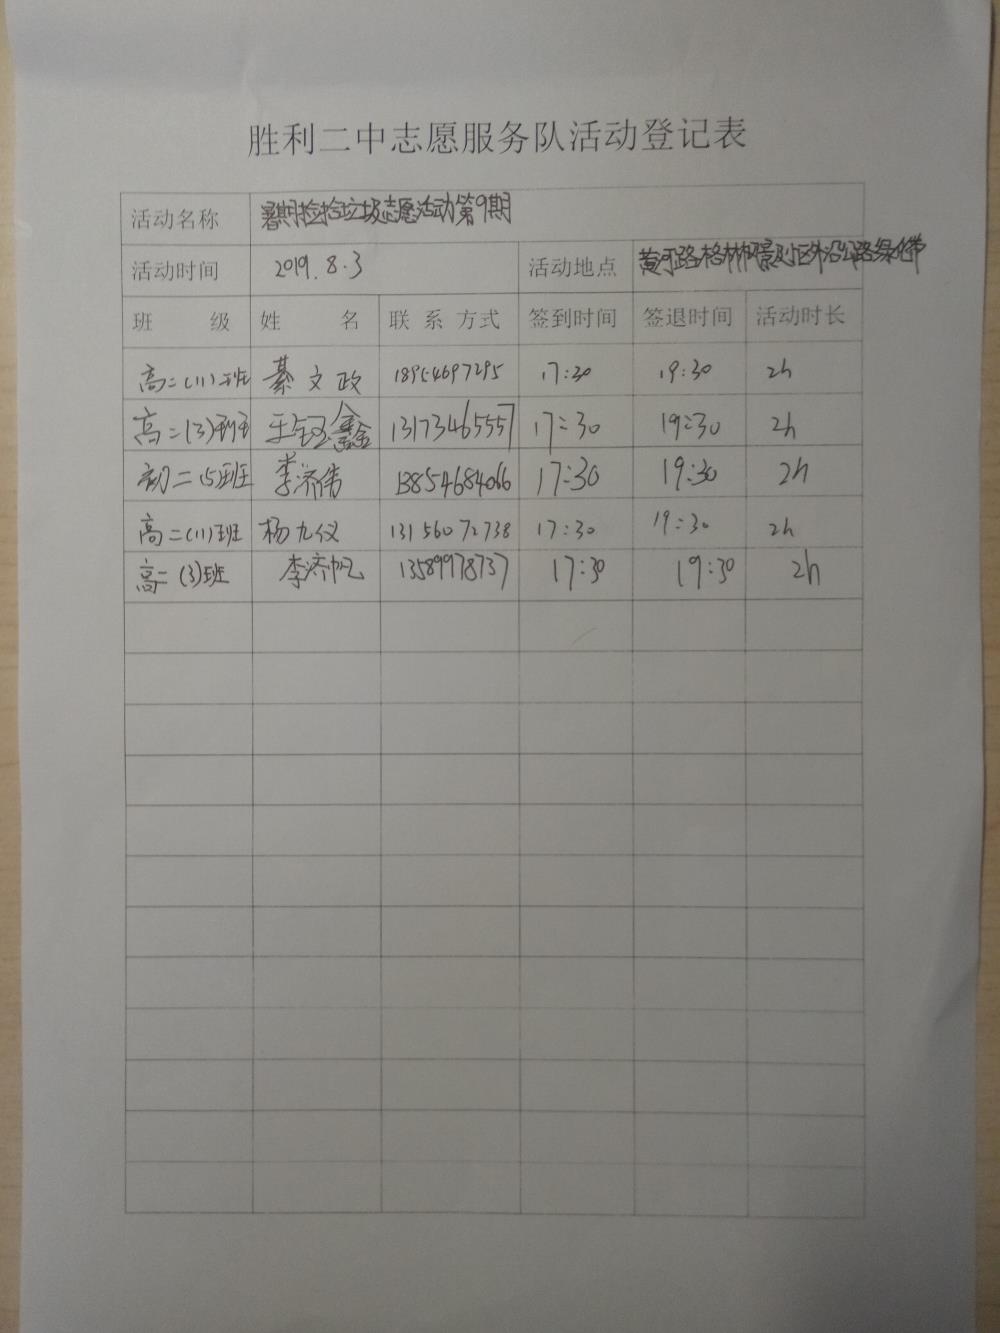 胜利二中志愿服务队活动登记表
活动名称 暑期捡拾垃圾志愿活动第9期
活动时间 2019.8.3 活动地点 黄河路格林风景小区外沿公路绿化带
班 级 姓 名 联系方式 签到时间 签退时间 活动时长
高二(11)班 綦文政 18954697295 17:30 19:30 2h
高二(3)班 王钰鑫 13173465557 17:30 19:30 2h
初二15班 李济伟 13854684066 17:30 19:30 2h
高二(11)班 杨九仪 13156072738 17:30 19:30 2h
高二(3)班 李济帆 13589978737 17:30 19:30 2h